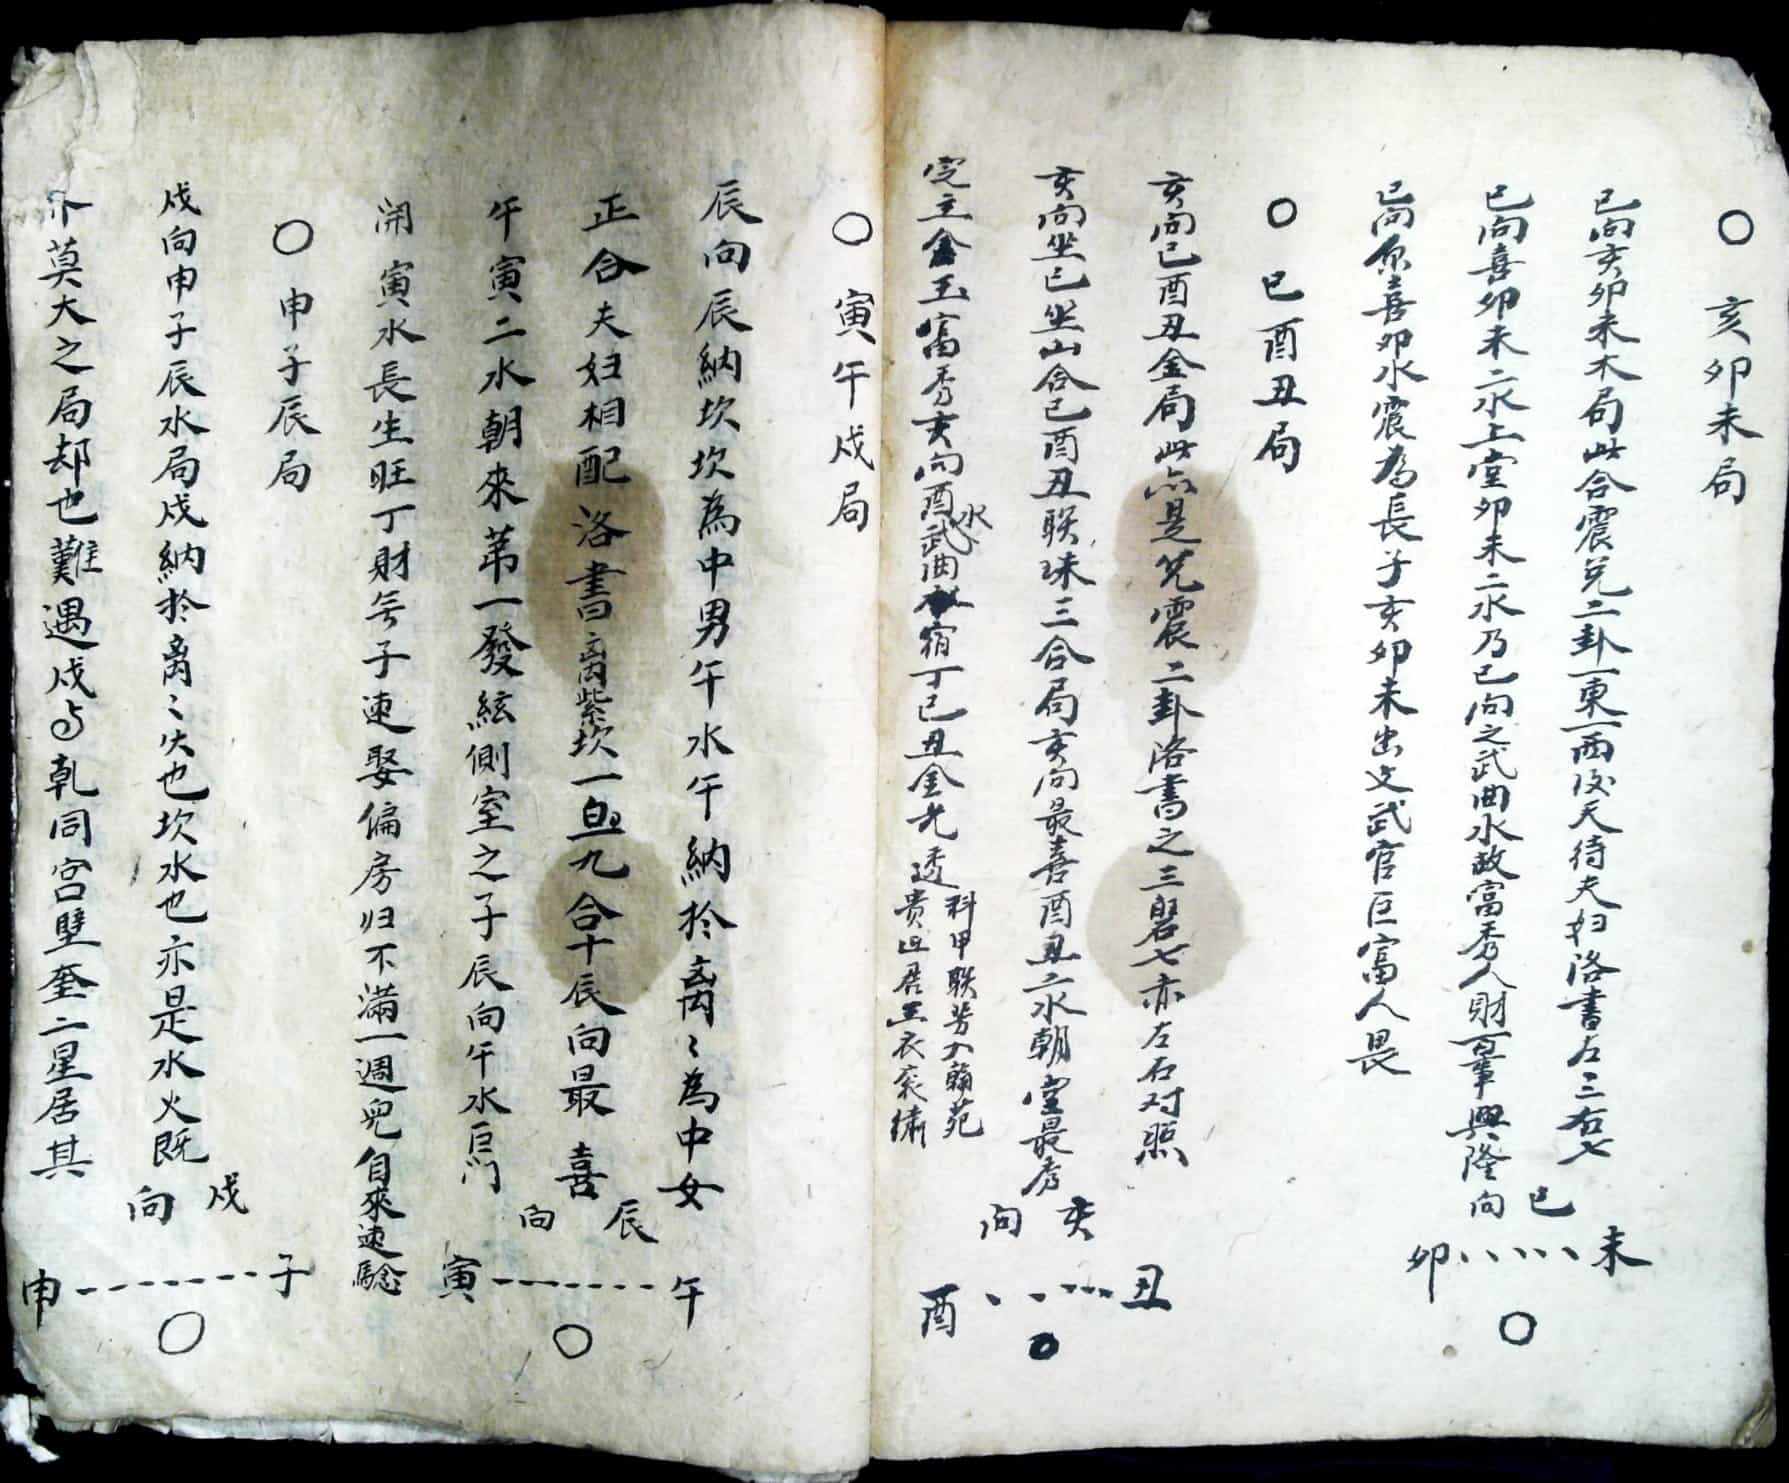 ○ 亥卯未局
巳向亥卯未木局此合震兌二卦一東一西後天待夫妇洛書左三右七
巳向喜卯未二水上堂卯未二水乃巳向之武曲水故富秀人財一輩興隆
巳向原喜卯水震為長子亥卯未出文武官巨富人畏
巳向
未 卯
○
○ 巳酉丑局
亥向巳酉丑金局此亦是兌震二卦洛書之三碧七赤左右对照
亥向坐巳坐山合巳酉丑联珠三合局亥向最喜酉丑二水朝堂最秀
定主金玉富秀亥向酉水武曲 宿丁巳丑金光透
科甲联芳入翰苑
贵 居 衣衮繡
亥向
丑 酉
○
○ 寅午戌局
辰向辰納坎坎為中男午水午納於离〻為中女
正合夫妇相配洛書离紫坎一白一九合十辰向最喜
午寅二水朝來苐一發絃側室之子辰向午水巨门
開寅水長生旺丁財無子速娶偏房归不滿一週兒自來速騐
辰向
午 寅
○
○ 申子辰局
戌向申子辰水局戌納於离〻火也坎水也亦是水火既
莫大之局却也難遇戌与乹同宫壁奎二星居其
戌向
子 申
○